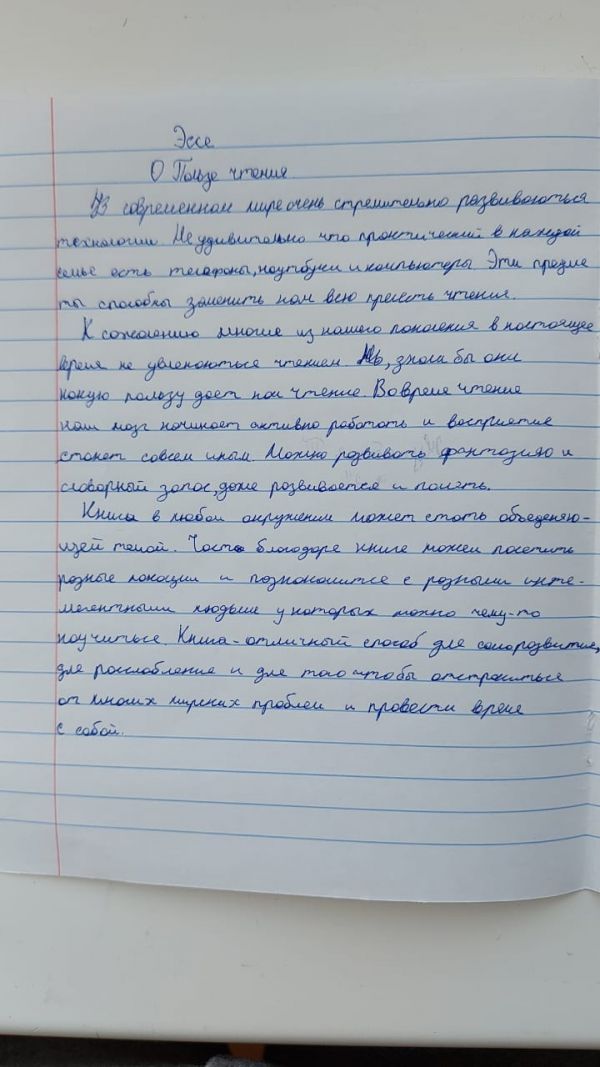 Эссе
О Пользе чтения
В современном мире очень стремительно развиваються
технологии. Не удивительно что практический в каждой
семье есть телефоны, ноутбуки и компьютеры Эти предме
ты способны заменить нам всю прелесть чтения.
К сожалению многие из нашего поколения в настоящее
время не увлекаються чтением. Но, знали бы они
какую пользу дает нам чтение. Во время чтения
наш мозг начинает активно работать и восприятие
станет совсем иным. Можно развивать фантазию и
словарный запас, даже развивается и память.
Книга в любом окружении может стать объеденяю-
щей темой. Часто благодаря книге можем посетить
разные локации и познакомится с разными инте-
легентными людьми у которых можно чему-то
научиться. Книга - отличный способ для саморазвития,
для расслабления и для того чтобы отстраниться
от многих мирских проблем и провести время
с собой.